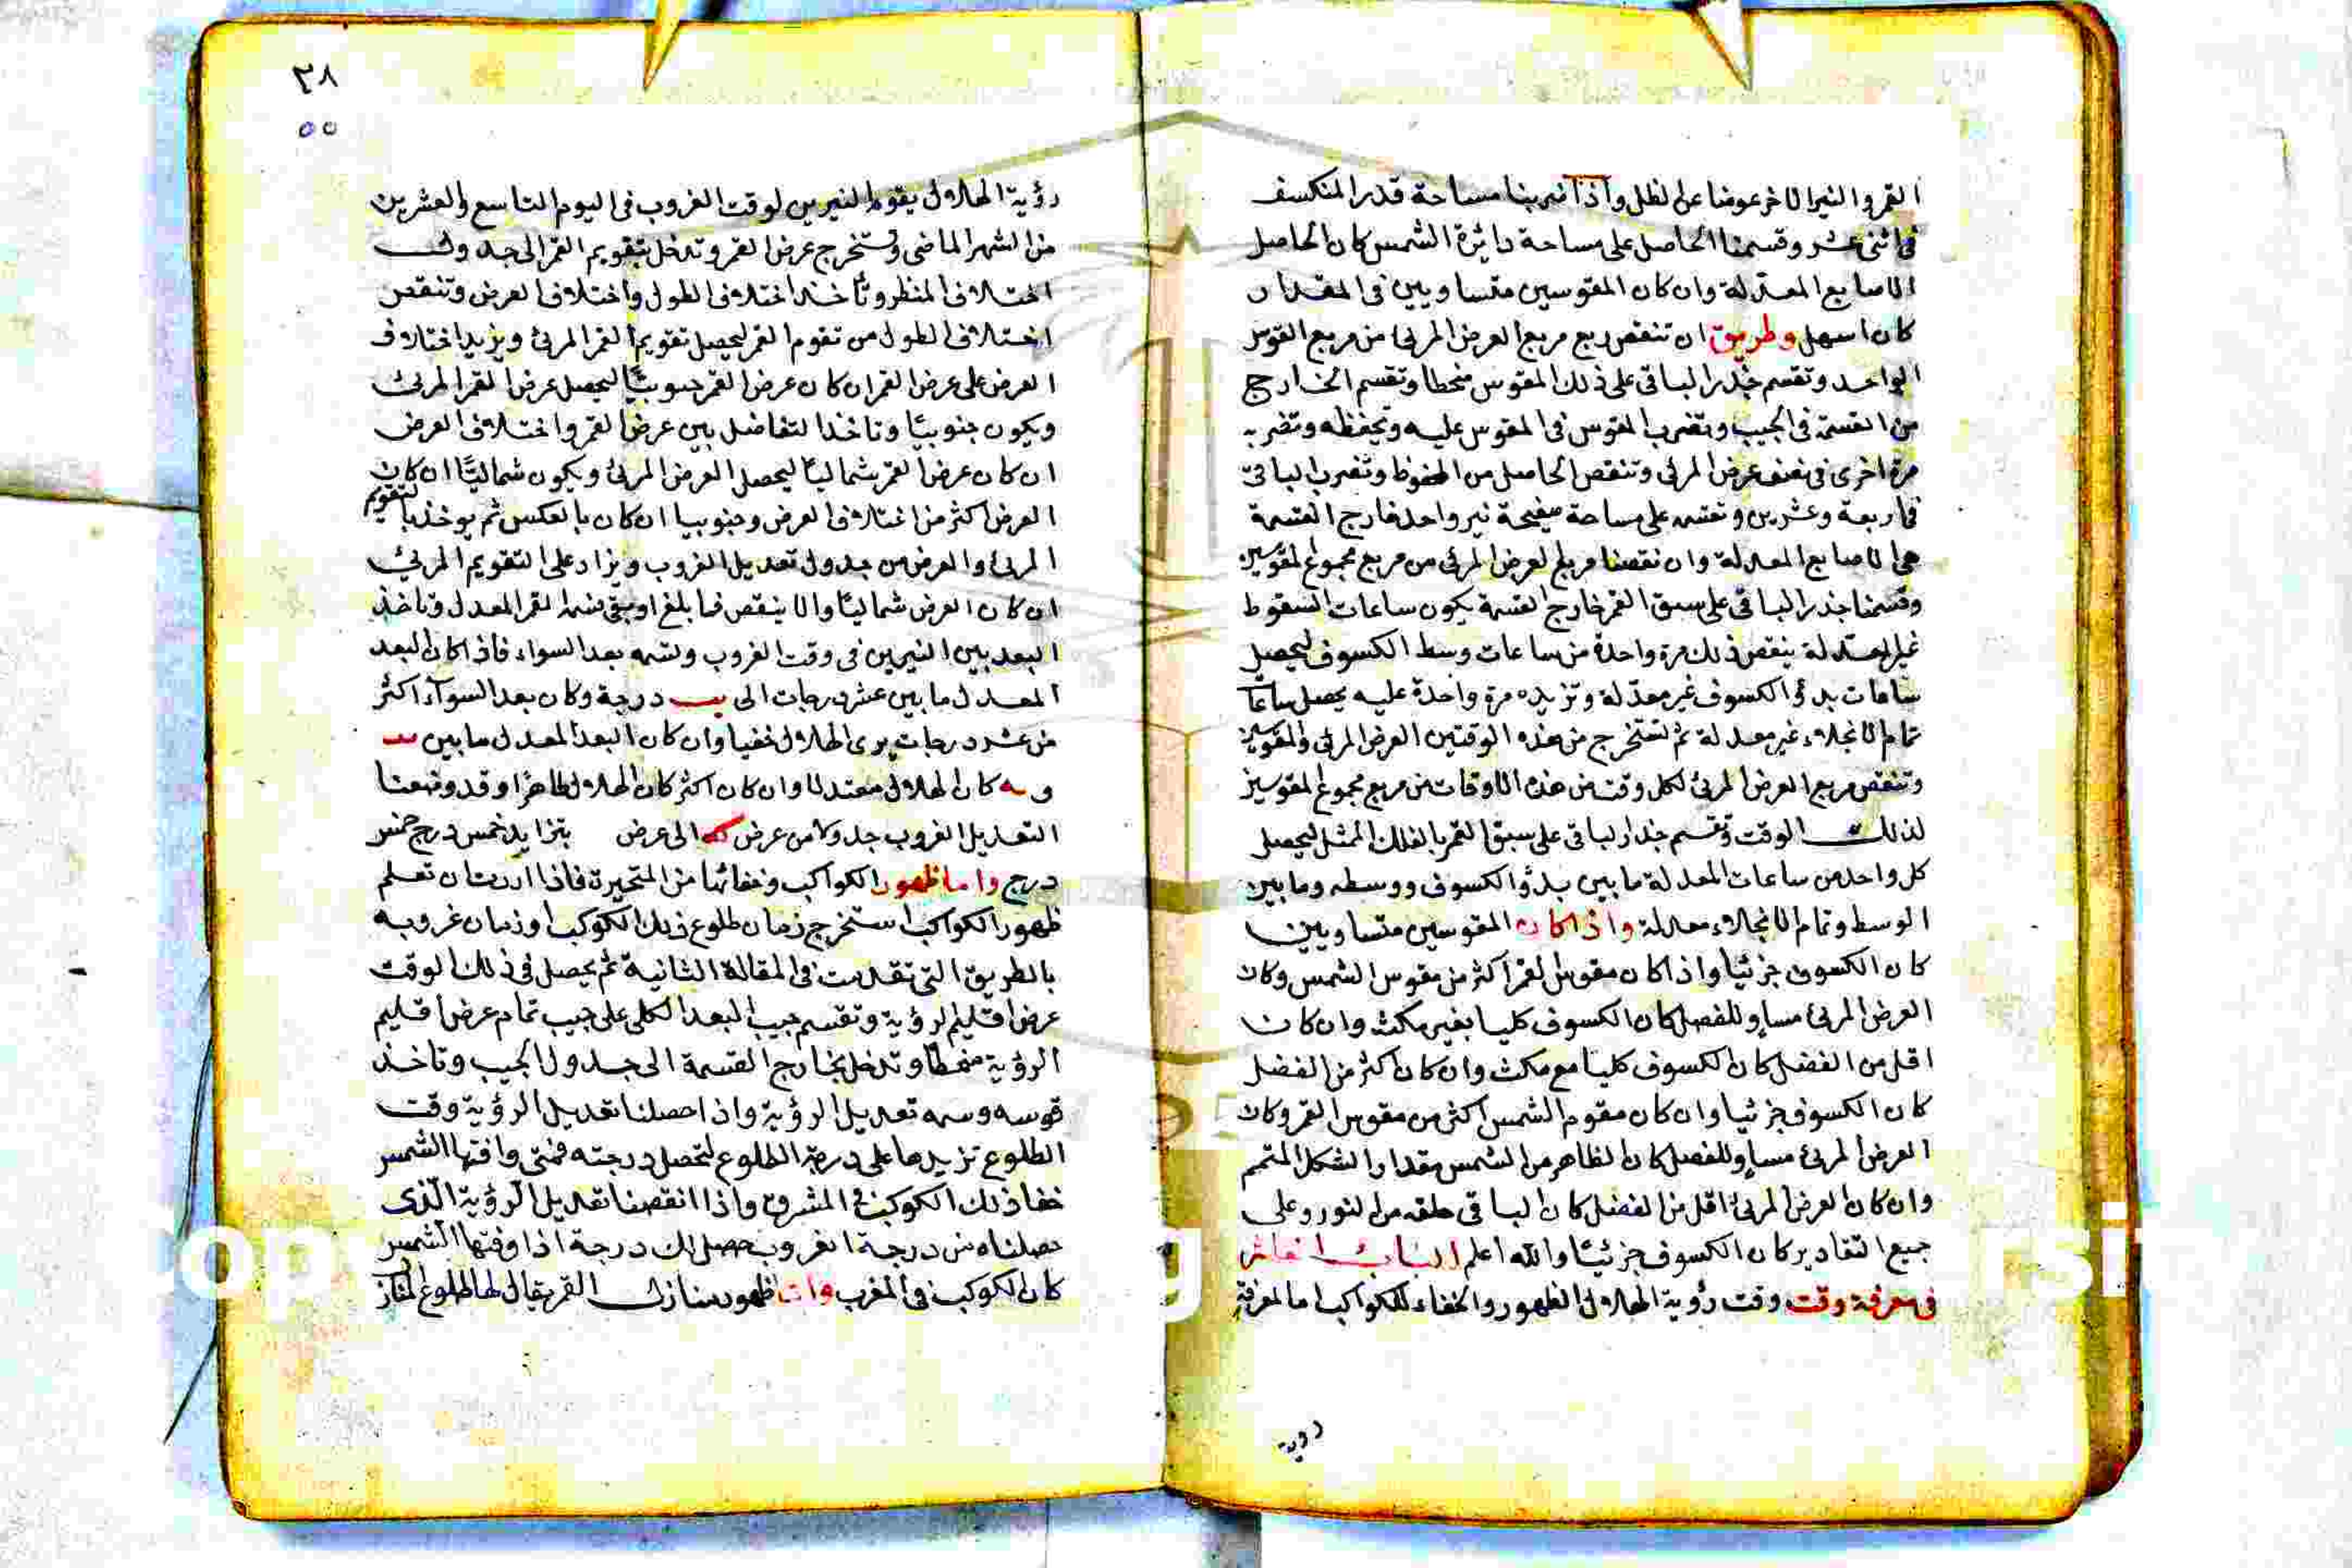 القمر والنير الاخر عوضا عن الظل واذا ضربنا مساحة قدر المنكسف
فى اثنى عشر وقسمنا الحاصل على مساحة دائرة الشمس كان الحاصل
الاصابع المعدلة وان كان المقوسين متساويين فى المقدار
كان اسهل وطريق ان تنقص ربع مربع العرض المرئى من مربع القوس
الواحد وتقسم جذر الباقى على ذلك المقوس منحطا وتقسم الخارج
من القسمة فى الجيب وتضرب المقوس فى المقوس عليه وتحفظه وتضربه
مرة اخرى فى نصف عرض المرئى وتنقص الحاصل من المحفوظ وتضرب الباقى
فى اربعة وعشرين وتقسمه على مساحة صفيحة نير واحد فخارج القسمة
هى الاصابع المعدلة وان نقصنا مربع العرض المرئى من مربع مجموع المقوسين
وقسمنا جذر الباقى على سبق القمر خارج القسمة يكون ساعات السقوط
غير المعتدلة ينقص ذلك مرة واحدة من ساعات وسط الكسوف ليحصل
ساعات بدؤ الكسوف غير معدّلة وتزيده مرة واحدة عليه يحصل ساعات
تمام الانجلاء غير معدلة ثم تستخرج من هذه الوقتين العرض المرئى والمقوسين
وتنقص مربع العرض المرئى لكل وقت من هذه الاوقات من مربع مجموع المقوسين
لذلك الوقت وتقسم جذر الباقى على سبق القمر بالفلك الممثل ليحصل
كل واحد من ساعات المعدلة ما بين بدؤ الكسوف ووسطه وما بين
الوسط وتمام الانجلاء معدلة واذا كان المقوسين متساويين
كان الكسوف جزئيا واذا كان مقوس القمر اكثر من مقوس الشمس وكان
العرض المرئى مساو للفصل كان الكسوف كليا بغير مكث وان كان
اقل من الفضل كان الكسوف كليا مع مكث وان كان اكثر من الفضل
كان الكسوف جزئيا وان كان مقوم الشمس اكثر من مقوس القمر وكان
العرض المرئى مساو للفصل كان الظاهر من الشمس مقدار الشكل المتمم
وان كان العرض المرئى اقل من الفضل كان الباقى حلقه من النور وعلى
جميع التقادير كان الكسوف جزئيا والله اعلم الباب
فى معرفة وقت وقت رؤية الهلال الظهور والخفاء للكواكب اما لمعرفة
رؤية
٣٨
٥٥
رؤية الهلال يقوم النيرين لوقت الغروب فى اليوم التاسع والعشرين
من الشهر الماضى وتستخرج عرض القمر وتدخل بتقويم القمر الى جدولى
اختلاف المنظر وتأخذ اختلاف الطول واختلاف العرض وتنقص
اختلاف الطول من تقوم القمر ليحصل تقويم القمر المرئى ويزيد اختلاف
العرض على عرض القمر ان كان عرض القمر جنوبيًا ليحصل عرض القمر المرئى
ويكون جنوبيًا وتاخذ التفاضل بين عرض القمر واختلاف العرض
ان كان عرض القمر شماليا ليحصل العرض المرئى ويكون شماليًا ان كان
العرض اكثر من اختلاف العرض وجنوبيا ان كان بالعكس ثم يوخذ بالتقويم
المرئى والعرض من جدول تعديل الغروب ويزاد على التقويم المرئى
ان كان العرض شماليًا والا ينقص فما بلغ او بقى نسمه القمر المعدل وتاخذ
البعد بين النيرين فى وقت الغروب ونسمه بعد السواء فاذا كان البعد
المعدل ما بين عشر درجات الى يب درجة وكان بعد السوآء اكثر
من عشر درجات يرى الهلال خفيا وان كان البعد المعدل ما بين يب
و يه كان الهلال معتدلا وان كان اكثر كان الهلال ظاهرًا وقد وضعنا
التعديل الغروب جدولا من عرض كه الى عرض بتزايد خمس درج خمس
درج واما ظهور الكواكب وخفائها من المتحيرة فاذا اردت ان تعلم
ظهور الكواكب استخرج زمان طلوع ذلك الكوكب او زمان غروبه
بالطريق التى تقدمت فى المقالة الثانية ثم يحصل فى ذلك الوقت
عرض اقليم الرؤية وتقسم جيب البعد الكلى على جيب تمام عرض اقليم
الرؤية منحطًا وتدخل بخارج القسمة الى جدول الجيب وتاخذ
قوسه وسمه تعديل الرؤية واذا حصلنا تعديل الرؤية وقت
الطلوع تزيدها على درجة الطلوع لتحصل درجته فمتى وافتها الشمس
خفا ذلك الكوكب فى المشرق واذا انقصنا تعديل الرؤية الّذى
حصلناه من درجة الغروب حصل لك درجة اذا وفتها الشمس
كان الكوكب فى المغرب واما ظهور منازل القمر يقال لها طلوع المنازل